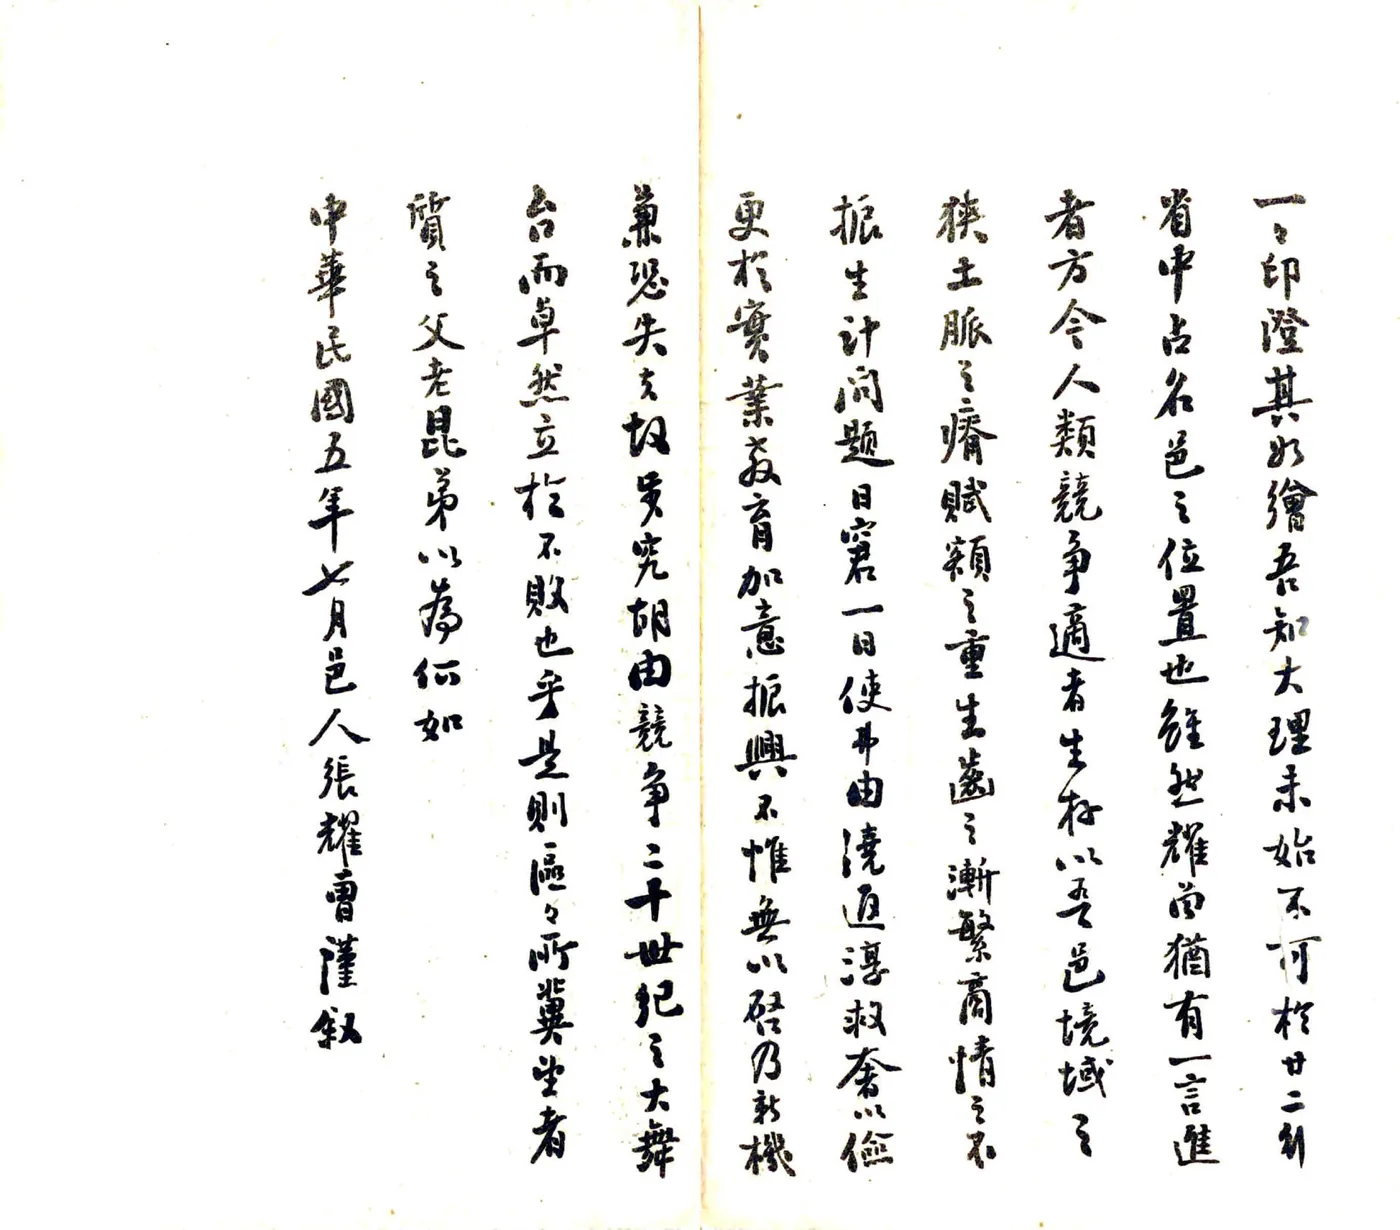 一々印澄其如繪吾知大理未始不可於廿二行
省中占名邑之位置也雖然耀曾猶有一言進
者方今人類競争適者生存以吾邑境域之
狹土脈之瘠賦額之重生齒之漸繁商情之不
振生計问題日窘一日使弗由澆返淳救奢以儉
更於實業教育加意振興不惟無以啓乃新機
兼恐失其故步究胡由競争二十世紀之大舞
台而卓然立於不敗也乎是則區々所冀望者
質之父老昆弟以為何如
中華民國五年七月邑人張耀曾謹叙